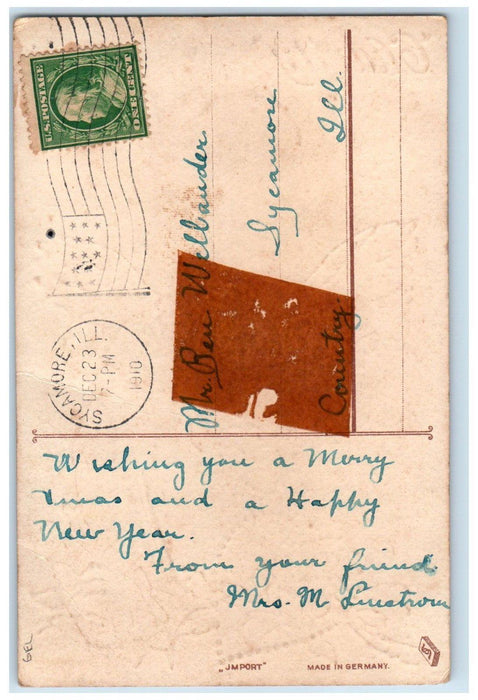 U.S. POSTAGE
ONE CENT
SYCAMORE, ILL.
DEC 23
7-PM
1910
Mr. Ben Wellander
Sycamore
Ill.
Country
Wishing you a Merry
Xmas and a Happy
New Year.
From your friend
Mrs. M Linstrom
GEL
„JMPORT"
MADE IN GERMANY.